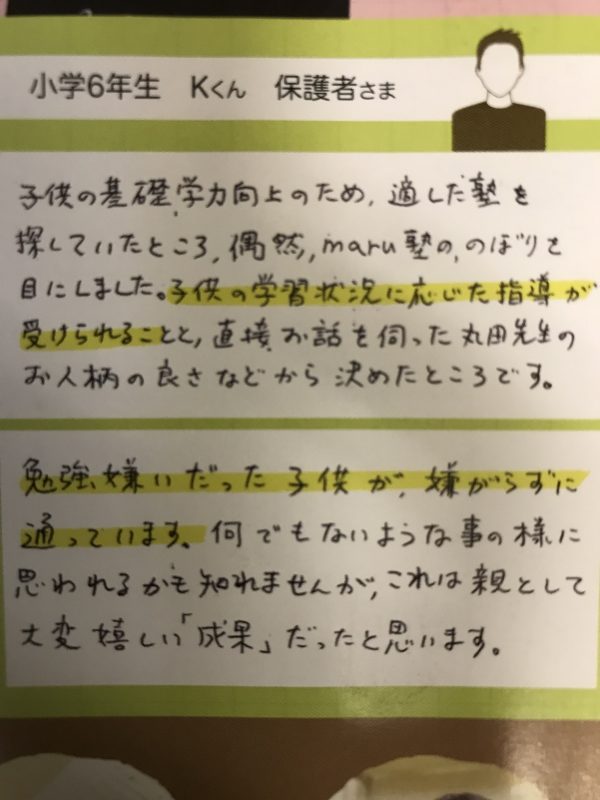 小学6年生 Kくん 保護者さま
子供の基礎学力向上のため、適した塾を
探していたところ、偶然、maru塾の、のぼりを
目にしました。子供の学習状況に応じた指導が
受けられることと、直接お話を伺った丸田先生の
お人柄の良さなどから決めたところです。
勉強嫌いだった子供が、嫌がらずに
通っています。何でもないような事の様に
思われるかも知れませんが、これは親として
大変嬉しい「成果」だったと思います。